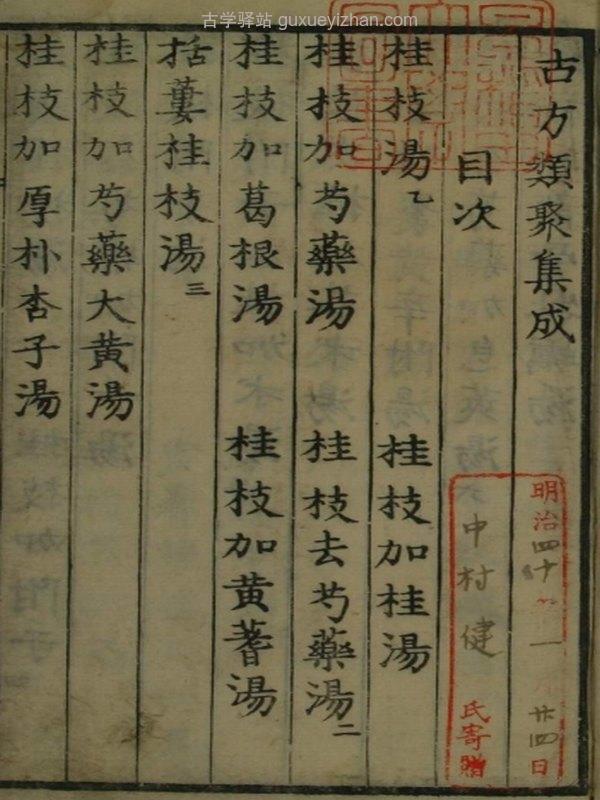 古学驿站 guxueyizhan.com
古方類聚集成
目次
桂枝湯乙
桂枝加桂湯
桂枝加芍藥湯
桂枝去芍藥湯二
桂枝加葛根湯
桂枝加黄蓍湯
括蔞桂枝湯三
桂枝加芍藥大黄湯
桂枝加厚朴杏子湯
明治四十
一
廿四日
中村健
氏寄贈